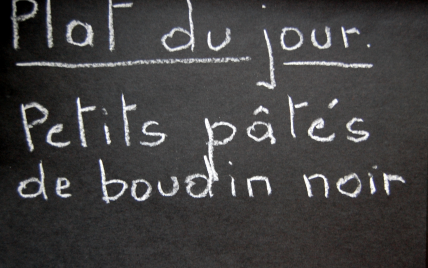 Plat du jour.
Petits pâtés
de boudin noir